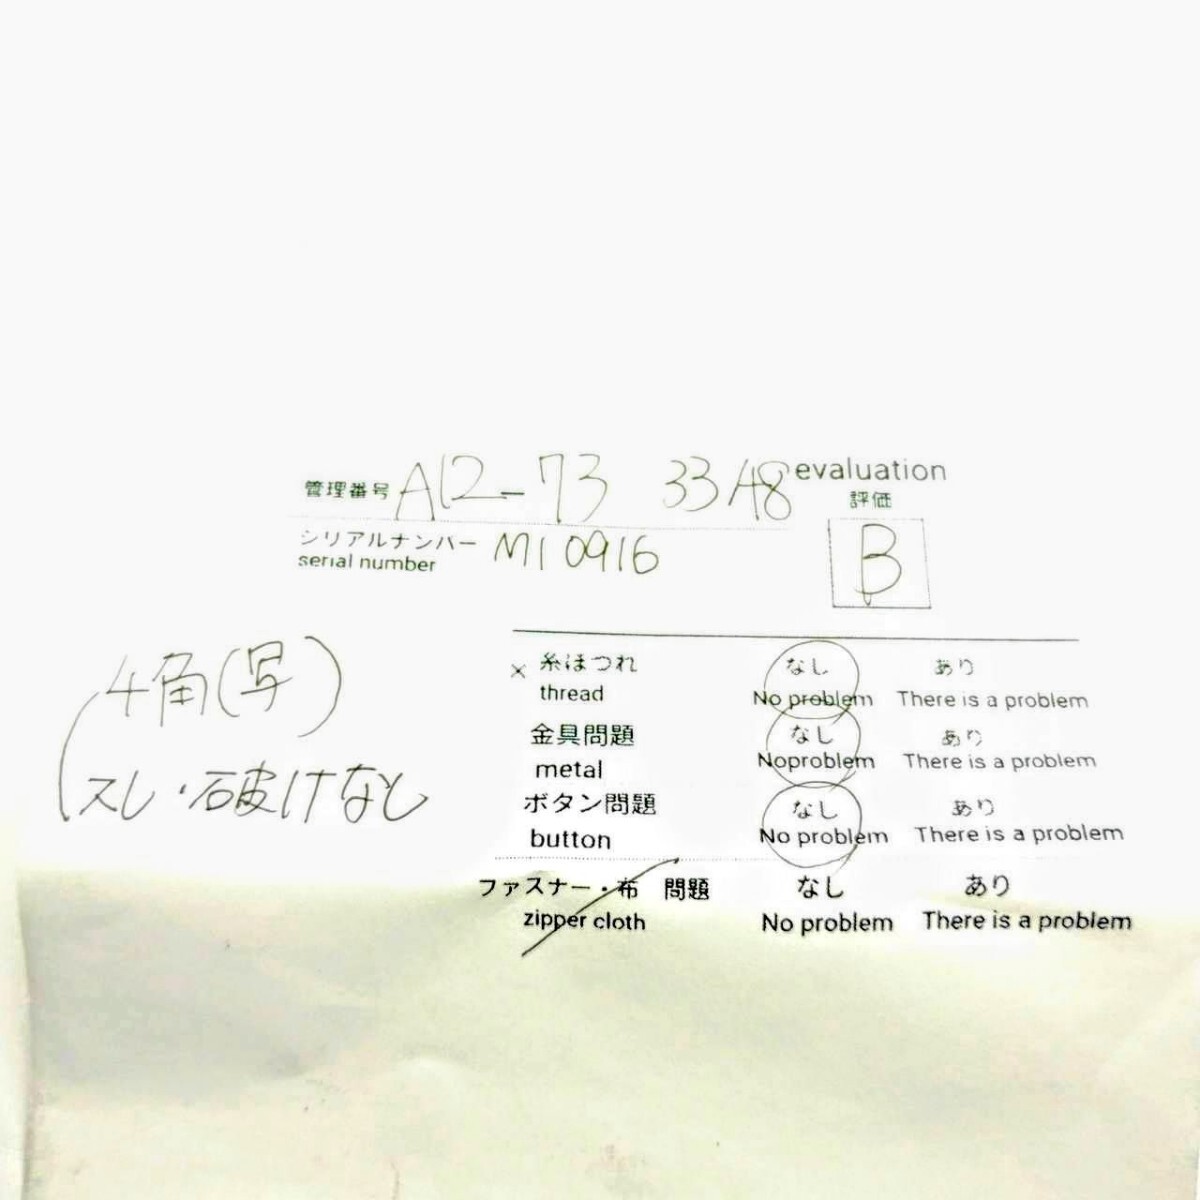 管理番号 A12-73 3348
evaluation
評価
シリアルナンバー M10916
serial number
B
4角(写)
スレ・破けなし
× 糸ほつれ なし あり
thread No problem There is a problem
金具問題 なし あり
metal Noproblem There is a problem
ボタン問題 なし あり
button No problem There is a problem
ファスナー・布 問題 なし あり
zipper cloth No problem There is a problem